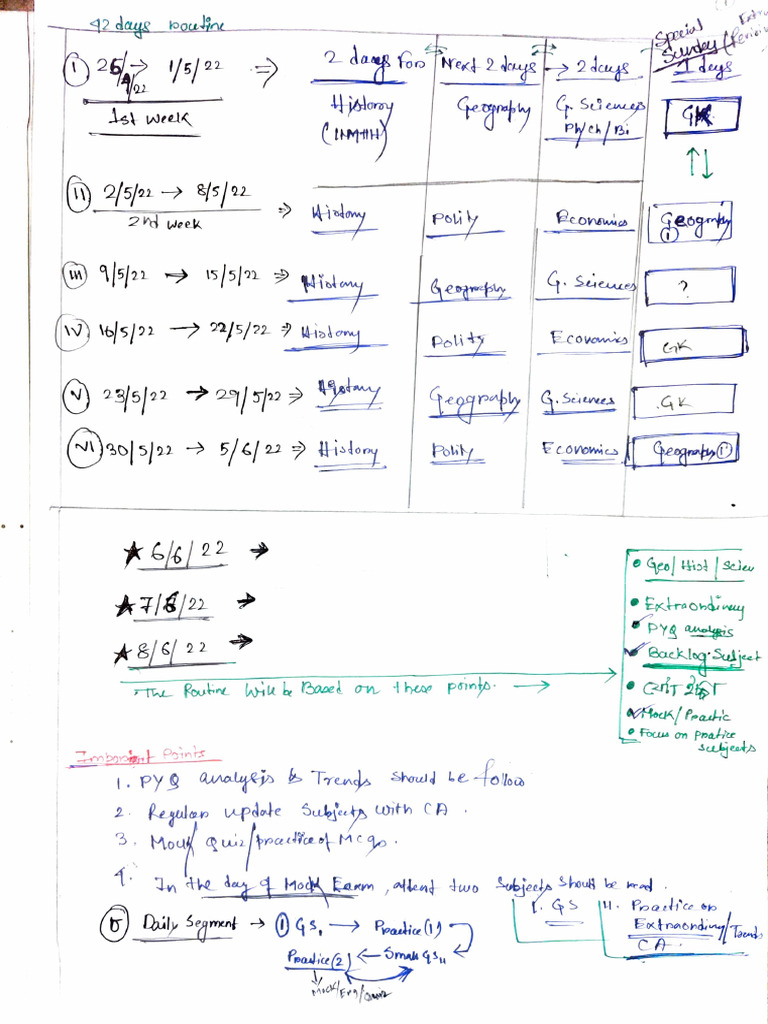 42 days Routine
Special Sunday (
I 25/4/22 → 1/5/22 ⇒ 2 days For Next 2 days → 2 days 1 days
1st week History Geography G. Sciences GK
Ph/Ch/Bi
II 2/5/22 → 8/5/22 ⇒ History Polity Economics Geography I
2nd week
III 9/5/22 → 15/5/22 ⇒ History Geography G. Sciences ?
IV 16/5/22 → 22/5/22 ⇒ History Polity Economics GK
V 23/5/22 → 29/5/22 ⇒ History Geography G. Sciences GK
VI 30/5/22 → 5/6/22 ⇒ History Polity Economics Geography I
★ 6/6/22 →
★ 7/6/22 →
★ 8/6/22 →
• Geo/Hist/Scien
• Extraordinary
• PYQ analysis
Backlog Subject
• Mock/Practic
• Focus on pratice subjects
• The Routine will be Based on these points. →
Imporint Points
1. PYQ analysis & Trends should be follow
2. Regular update Subjects with CA.
3. Mock/Quiz/practice of MCQs.
4. In the day of Mock Exam, atleat two Subjects should be read.
I. GS II. Practice on Extraordinary/Trends
CA.
5 Daily Segment → I GS₁ → Practice(1)
Practice(2) ← Small GS₁₁
Mock/Eng/Quiz